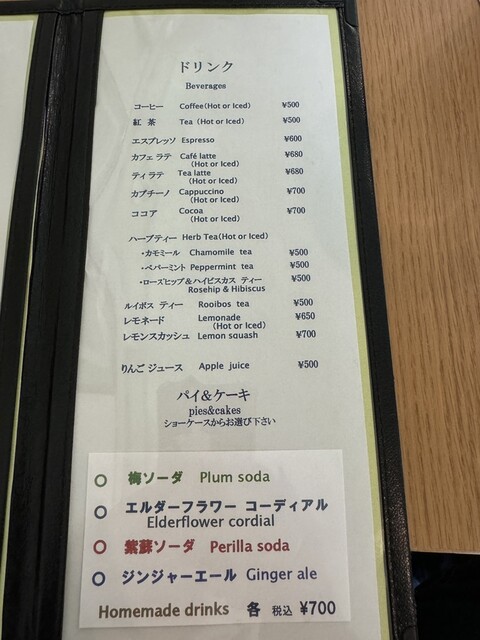 ドリンク
Beverages
コーヒー Coffee(Hot or Iced) ¥500
紅 茶 Tea (Hot or Iced) ¥500
エスプレッソ Espresso ¥600
カフェ ラテ Café latte ¥680
(Hot or Iced)
ティ ラテ Tea latte ¥680
(Hot or Iced)
カプチーノ Cappuccino ¥700
(Hot or Iced)
ココア Cocoa ¥700
(Hot or Iced)
ハーブティー Herb Tea(Hot or Iced)
・カモミール Chamomile tea ¥500
・ペパーミント Peppermint tea ¥500
・ローズヒップ&ハイビスカス ティー ¥500
Rosehip & Hibiscus
ルイボス ティー Rooibos tea ¥500
レモネード Lemonade ¥650
(Hot or Iced)
レモンスカッシュ Lemon squash ¥700
りんご ジュース Apple juice ¥500
パイ&ケーキ
pies&cakes
ショーケースからお選び下さい
梅ソーダ Plum soda
エルダーフラワー コーディアル
Elderflower cordial
紫蘇ソーダ Perilla soda
ジンジャーエール Ginger ale
Homemade drinks 各 税込 ¥700